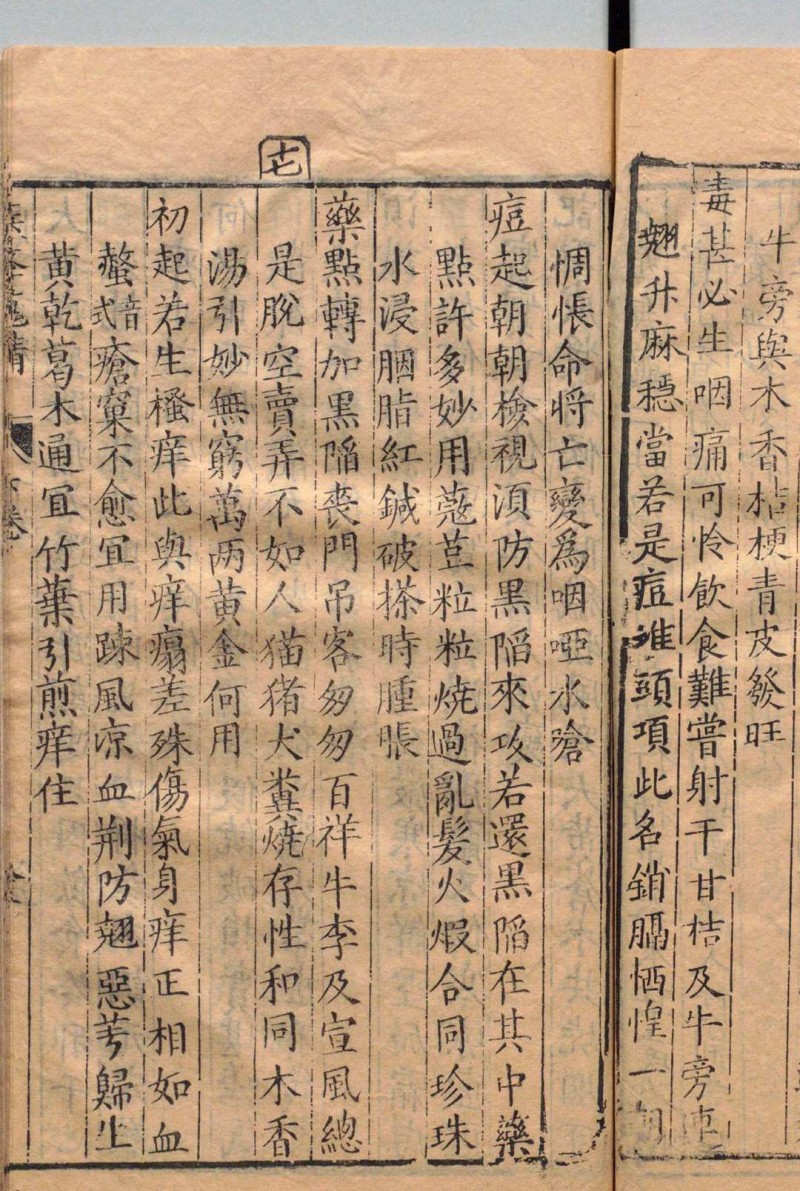 牛旁與木香桔梗青皮發旺
毒甚必生咽痛可怜飲食難嘗射干甘桔及牛旁連
翹升麻穩當若是痘堆頭項此名銷膈恓惶一
惆悵命將亡變爲咽啞水嗆
痘起朝朝檢視湏防黑陥來攻若還黑陥在其中藥
點許多妙用蔻荳粒粒燒過亂髮火煆合同珍珠
水浸胭脂紅鍼破搽時腫脹
十七
藥點轉加黑陥喪門吊客匆匆百祥牛李及宣風總
是脫空賣弄不如人猫猪犬糞燒存性和同木香
湯引妙無窮萬两黄金何用
初起若生搔痒此與痒癟差殊傷氣身痒正相如血
螫音式瘡窠不愈冝用踈風凉血荆防翘惡芍歸生
黄乾葛木通冝竹葉引煎痒住